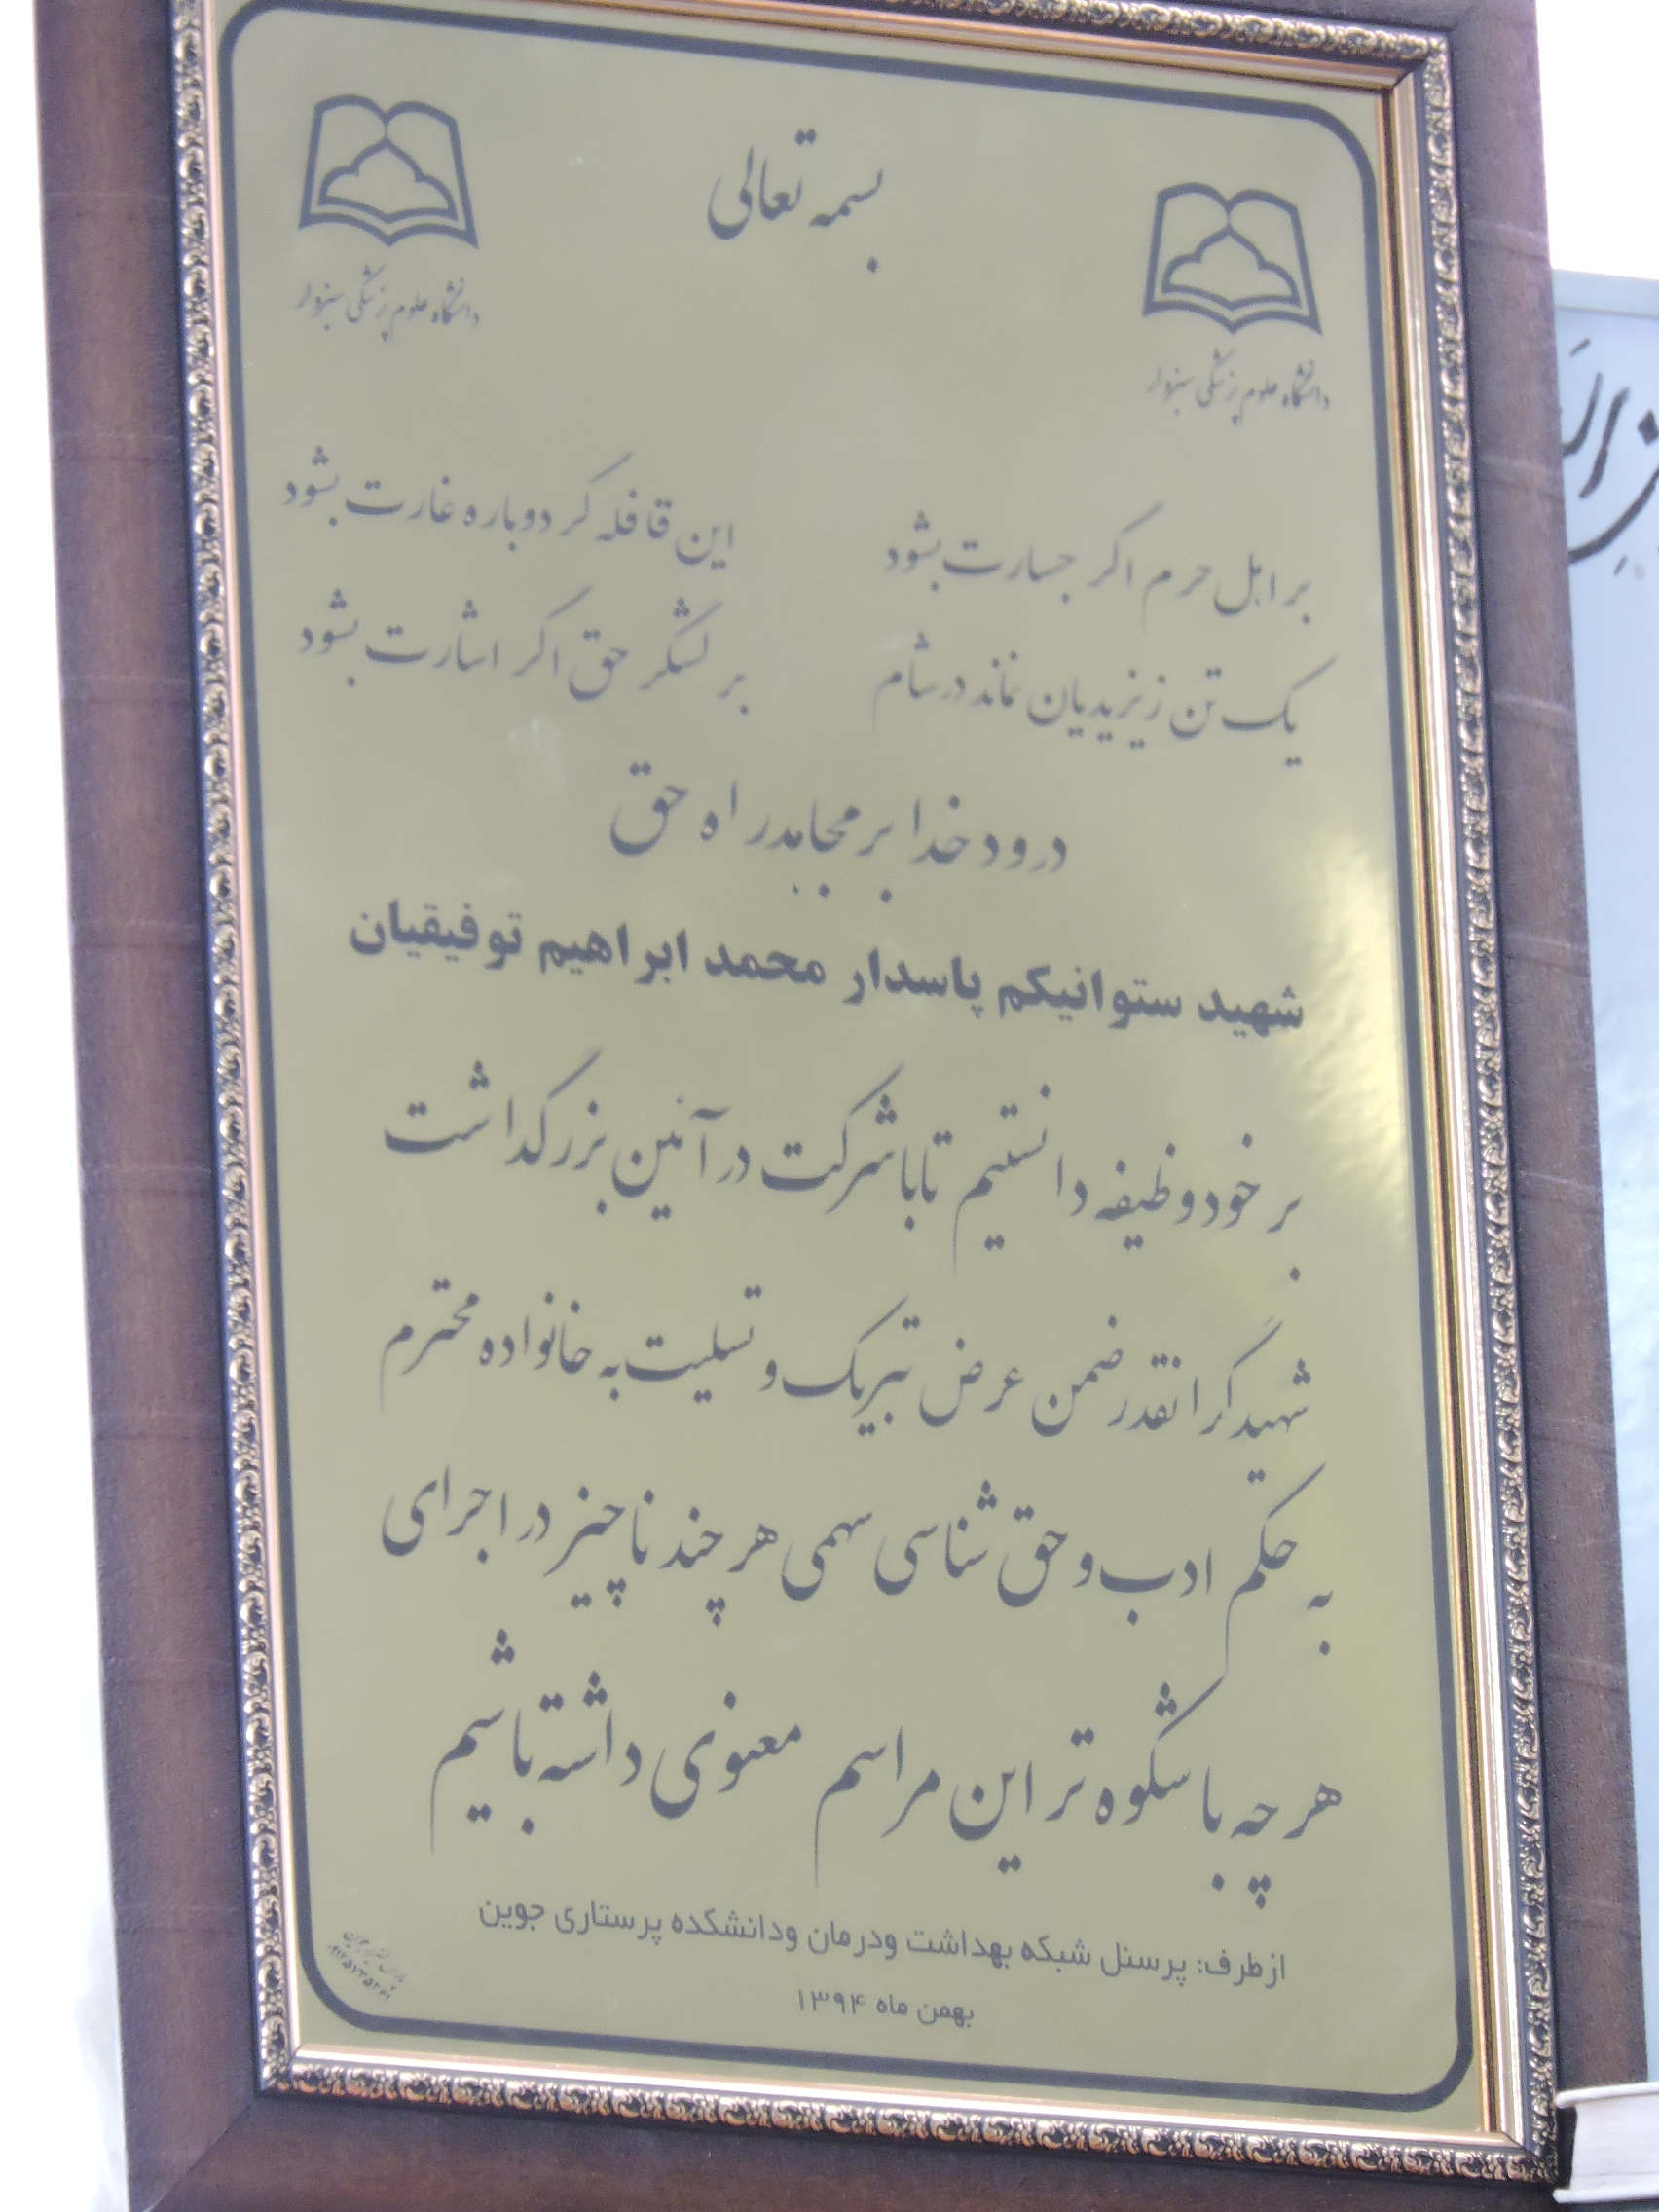 بسمه تعالی
دانشگاه علوم پزشکی سبزوار
دانشگاه علوم پزشکی سبزوار
بر اهل حرم اگر جسارت بشود این قافله گر دوباره غارت بشود
یک تن ز یزیدیان نماند در شام بر لشگر حق اگر اشارت بشود
درود خدا بر مجاهد راه حق
شهید ستوانیکم پاسدار محمد ابراهیم توفیقیان
بر خود وظیفه دانستیم تا با شرکت در آئین بزرگداشت
شهید گرانقدر ضمن عرض تبریک و تسلیت به خانواده محترم
به حکم ادب و حق شناسی سهمی هر چند ناچیز در اجرای
هر چه با شکوه تر این مراسم معنوی داشته باشیم
از طرف: پرسنل شبکه بهداشت ودرمان ودانشکده پرستاری جوین
بهمن ماه ۱۳۹۴